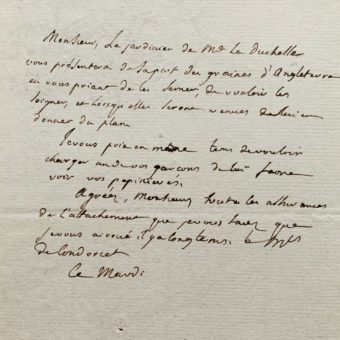 Monsieur, Le jardinier de Md La Duchesse
vous présentera de sa part des graines d'Angleterre
en vous priant de les semer de vouloir les
soigner, et lorsqu'elles seront venues de lui en
donner du plan.
Je vous prie en même tems de vouloir
charger un de vos garçons de lui faire
voir vos pepinieres.
Agréez, Monsieur, toutes les assurances
de l'attachement que vous savez que
je vous ai voué il y a longtems. le
de Condorcet
Ce Mardi